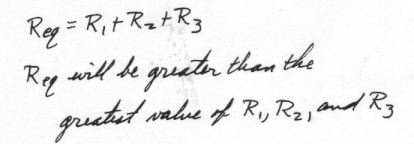 Req = R₁ + R₂ + R₃
Req will be greater than the
greatest value of R₁, R₂, and R₃